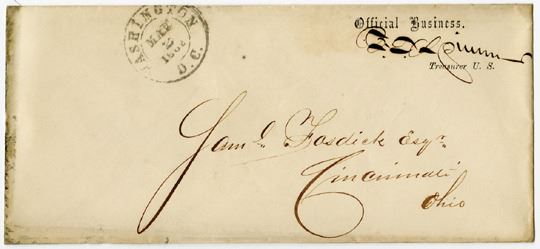 WASHINGTON
MAR
D.C.
Official Business.
Treasurer U. S.
Saml. Fosdick Esqr.
Cincinnati
Ohio